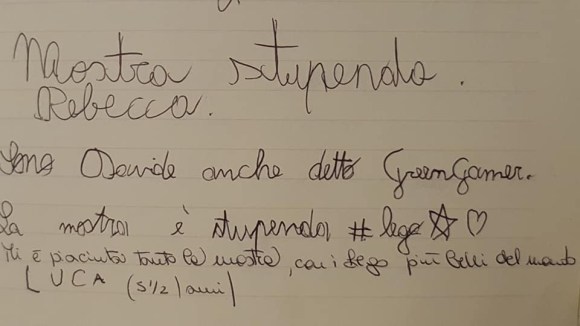 Mostra stupenda.
Rebecca.
Sono Davide anche detto GreenGamer.
La mostra è stupenda #lego☆♡
Mi è piaciuta tanto la mostra, con i Lego più belli del mondo
LUCA (5 1/2 anni)